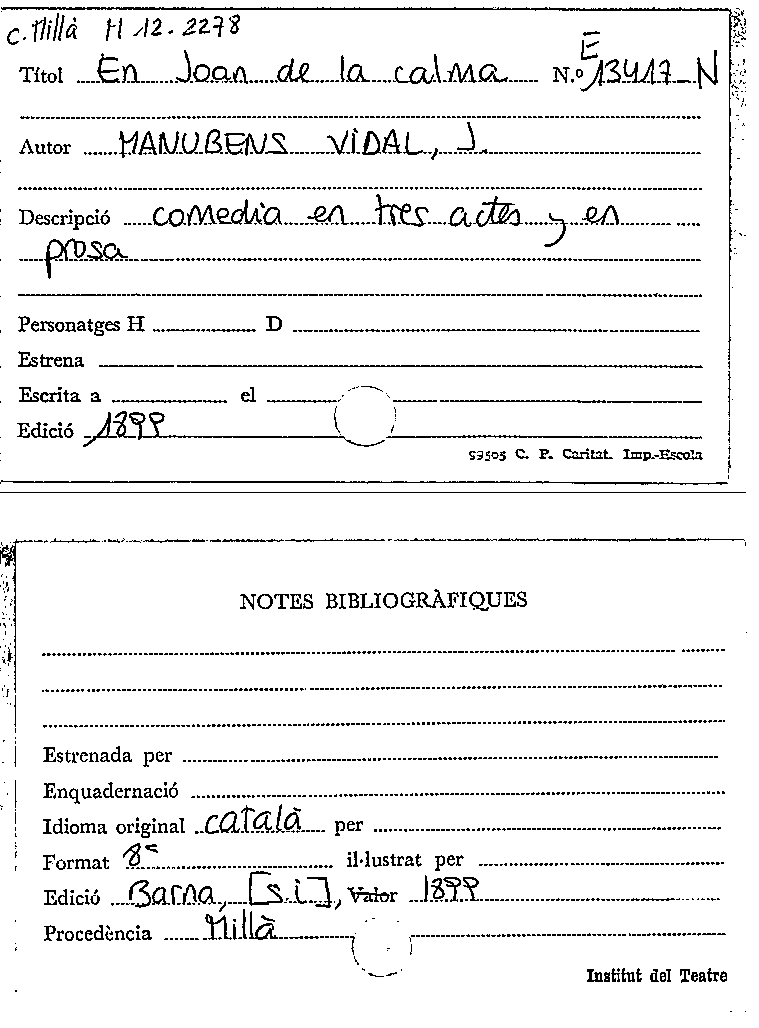 C. Millà H 12. 2278
Títol En Joan de la calma N.º E 13417-N
Autor MANUBENS VIDAL, J.
Descripció comedia en tres actes y en
prosa
Personatges H D
Estrena
Escrita a el
Edició 1899
99505 C. P. Caritat. Imp.-Escola
NOTES BIBLIOGRÀFIQUES
Estrenada per
Enquadernació
Idioma original català per
Format 8º il·lustrat per
Edició Barna, [s.i], Valor 1899
Procedència Millà
Institut del Teatre